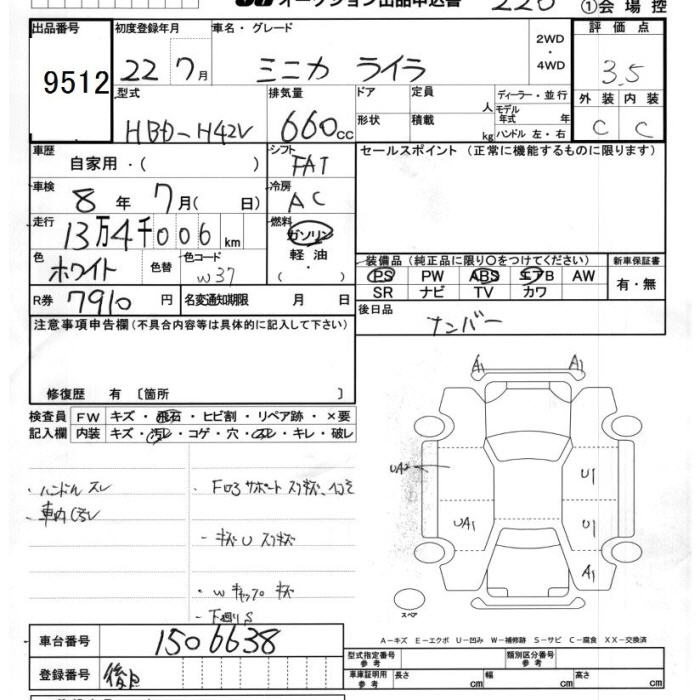 オークション出品申込書
①会場控
出品番号
9512
初度登録年月
22 7月
車名・グレード
ミニカ ライラ
2WD
・
4WD
評価点
3.5
外装 内装
C C
型式
HBD-H42V
排気量
660cc
ドア
形状
定員 人
積載 kg
ディーラー・並行
モデル
年式 年
ハンドル 左・右
車歴
自家用・( )
シフト
FAT
セールスポイント (正常に機能するものに限ります)
車検
8年 7月( 日)
冷房
AC
走行
13万4千006km
燃料
ガソリン
軽油
・
( )
色
ホワイト
色替
色コード
W37
装備品(純正品に限り○をつけてください)
PS PW ABS エアB AW
SR ナビ TV カワ
新車保証書
有・無
R券 7910円
名変通知期限 月 日
後日品
ナンバー
注意事項申告欄(不具合内容等は具体的に記入して下さい)
修復歴 有 〔箇所 〕
検査員 FW キズ・飛石・ヒビ割・リペア跡・×要
記入欄 内装 キズ・汚レ・コゲ・穴・スレ・キレ・破レ
・ハンドル スレ
・車内 汚レ
・キズU スリキズ
・Wキャップ キズ
・下廻りS
A1 A1
UA2
U1
UA1
U1
A1
スペア
A-キズ E-エクボ U-凹み W-補修跡 S-サビ C-腐食 XX-交換済
車台番号
1506638
登録番号
後日
型式指定番号
参考
類別区分番号
参考
車庫証明用
参考
長さ cm
幅 cm
高さ cm